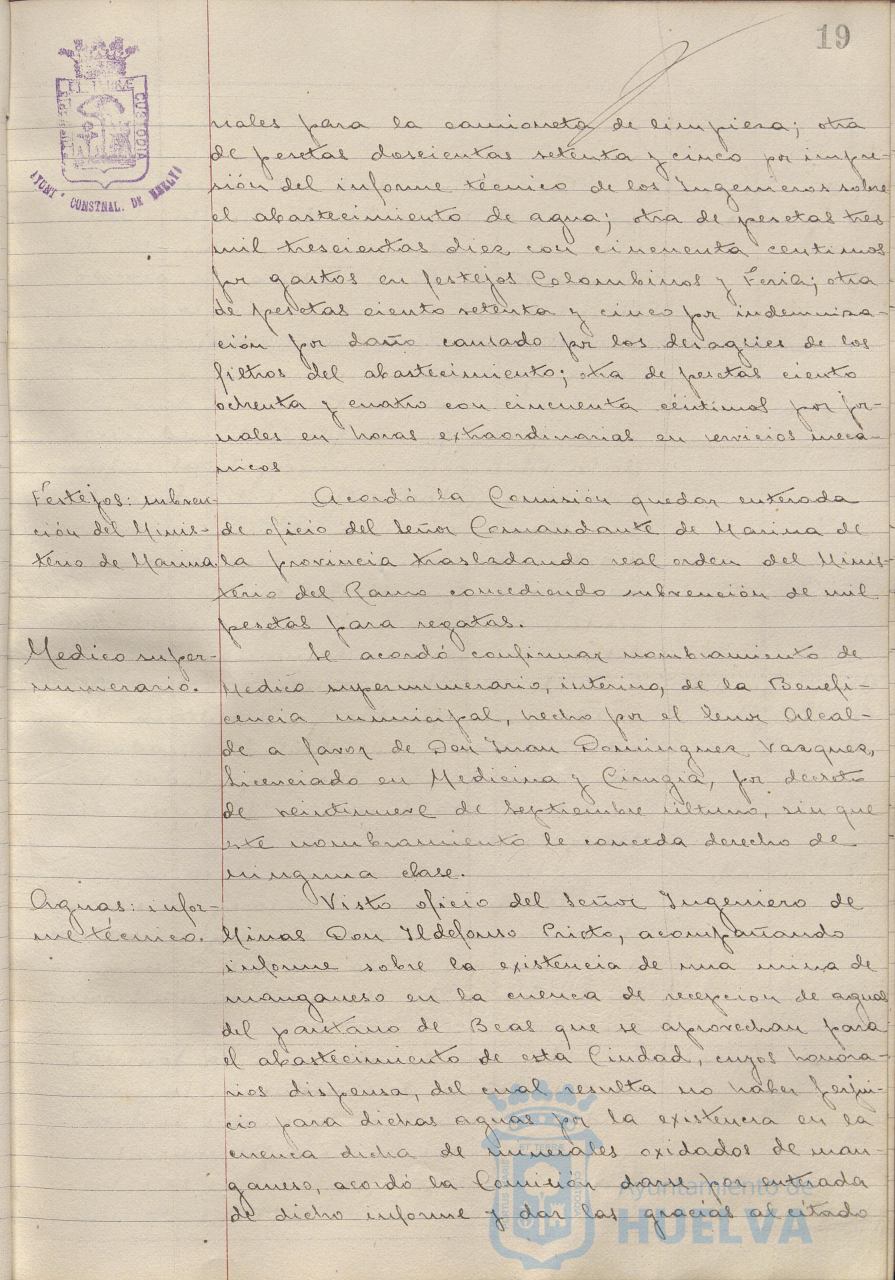 19
AYUNT. CONSTNAL. DE HUELVA
nales para la camioneta de limpieza; otra
de pesetas doscientas setenta y cinco por impre-
sión del informe técnico de los Ingenieros sobre
el abastecimiento de agua; otra de pesetas tres
mil trescientas diez con cincuenta centimos
por gastos en festejos Colombinos y Feria; otra
de pesetas ciento setenta y cinco por indemniza-
ción por daño causado por los desagües de los
filtros del abastecimiento; otra de pesetas ciento
ochenta y cuatro con cincuenta céntimos por jor-
nales en horas extraordinarias en servicios mecá-
nicos
Festejos: subven-
ción del Minis-
terio de Marina.
Acordó la Comisión quedar enterada
de oficio del Señor Comandante de Marina de
la provincia trasladando real orden del Minis-
terio del Ramo concediendo subvención de mil
pesetas para regatas.
Medico super-
numerario.
Se acordó confirmar nombramiento de
Medico supernumerario, interino, de la Benefi-
cencia municipal, hecho por el Señor Alcal-
de a favor de Don Juan Dominguez Vazquez,
Licenciado en Medicina y Cirugia, por decreto
de veintinueve de Septiembre último, sin que
este nombramiento le conceda derecho de
ninguna clase.
Aguas: infor-
me técnico.
Visto oficio del Señor Ingeniero de
Minas Don Ildefonso Prieto, acompañando
informe sobre la existencia de una mina de
manganeso en la cuenca de recepcion de aguas
del pantano de Beas que se aprovechan para
el abastecimiento de esta Ciudad, cuyos honora-
rios dispensa, del cual resulta no haber perjui-
cio para dichas aguas por la existencia en la
cuenca dicha de minerales oxidados de man-
ganeso, acordó la Comisión darse por enterada
de dicho informe y dar las gracias al citado
Ayuntamiento de
HUELVA